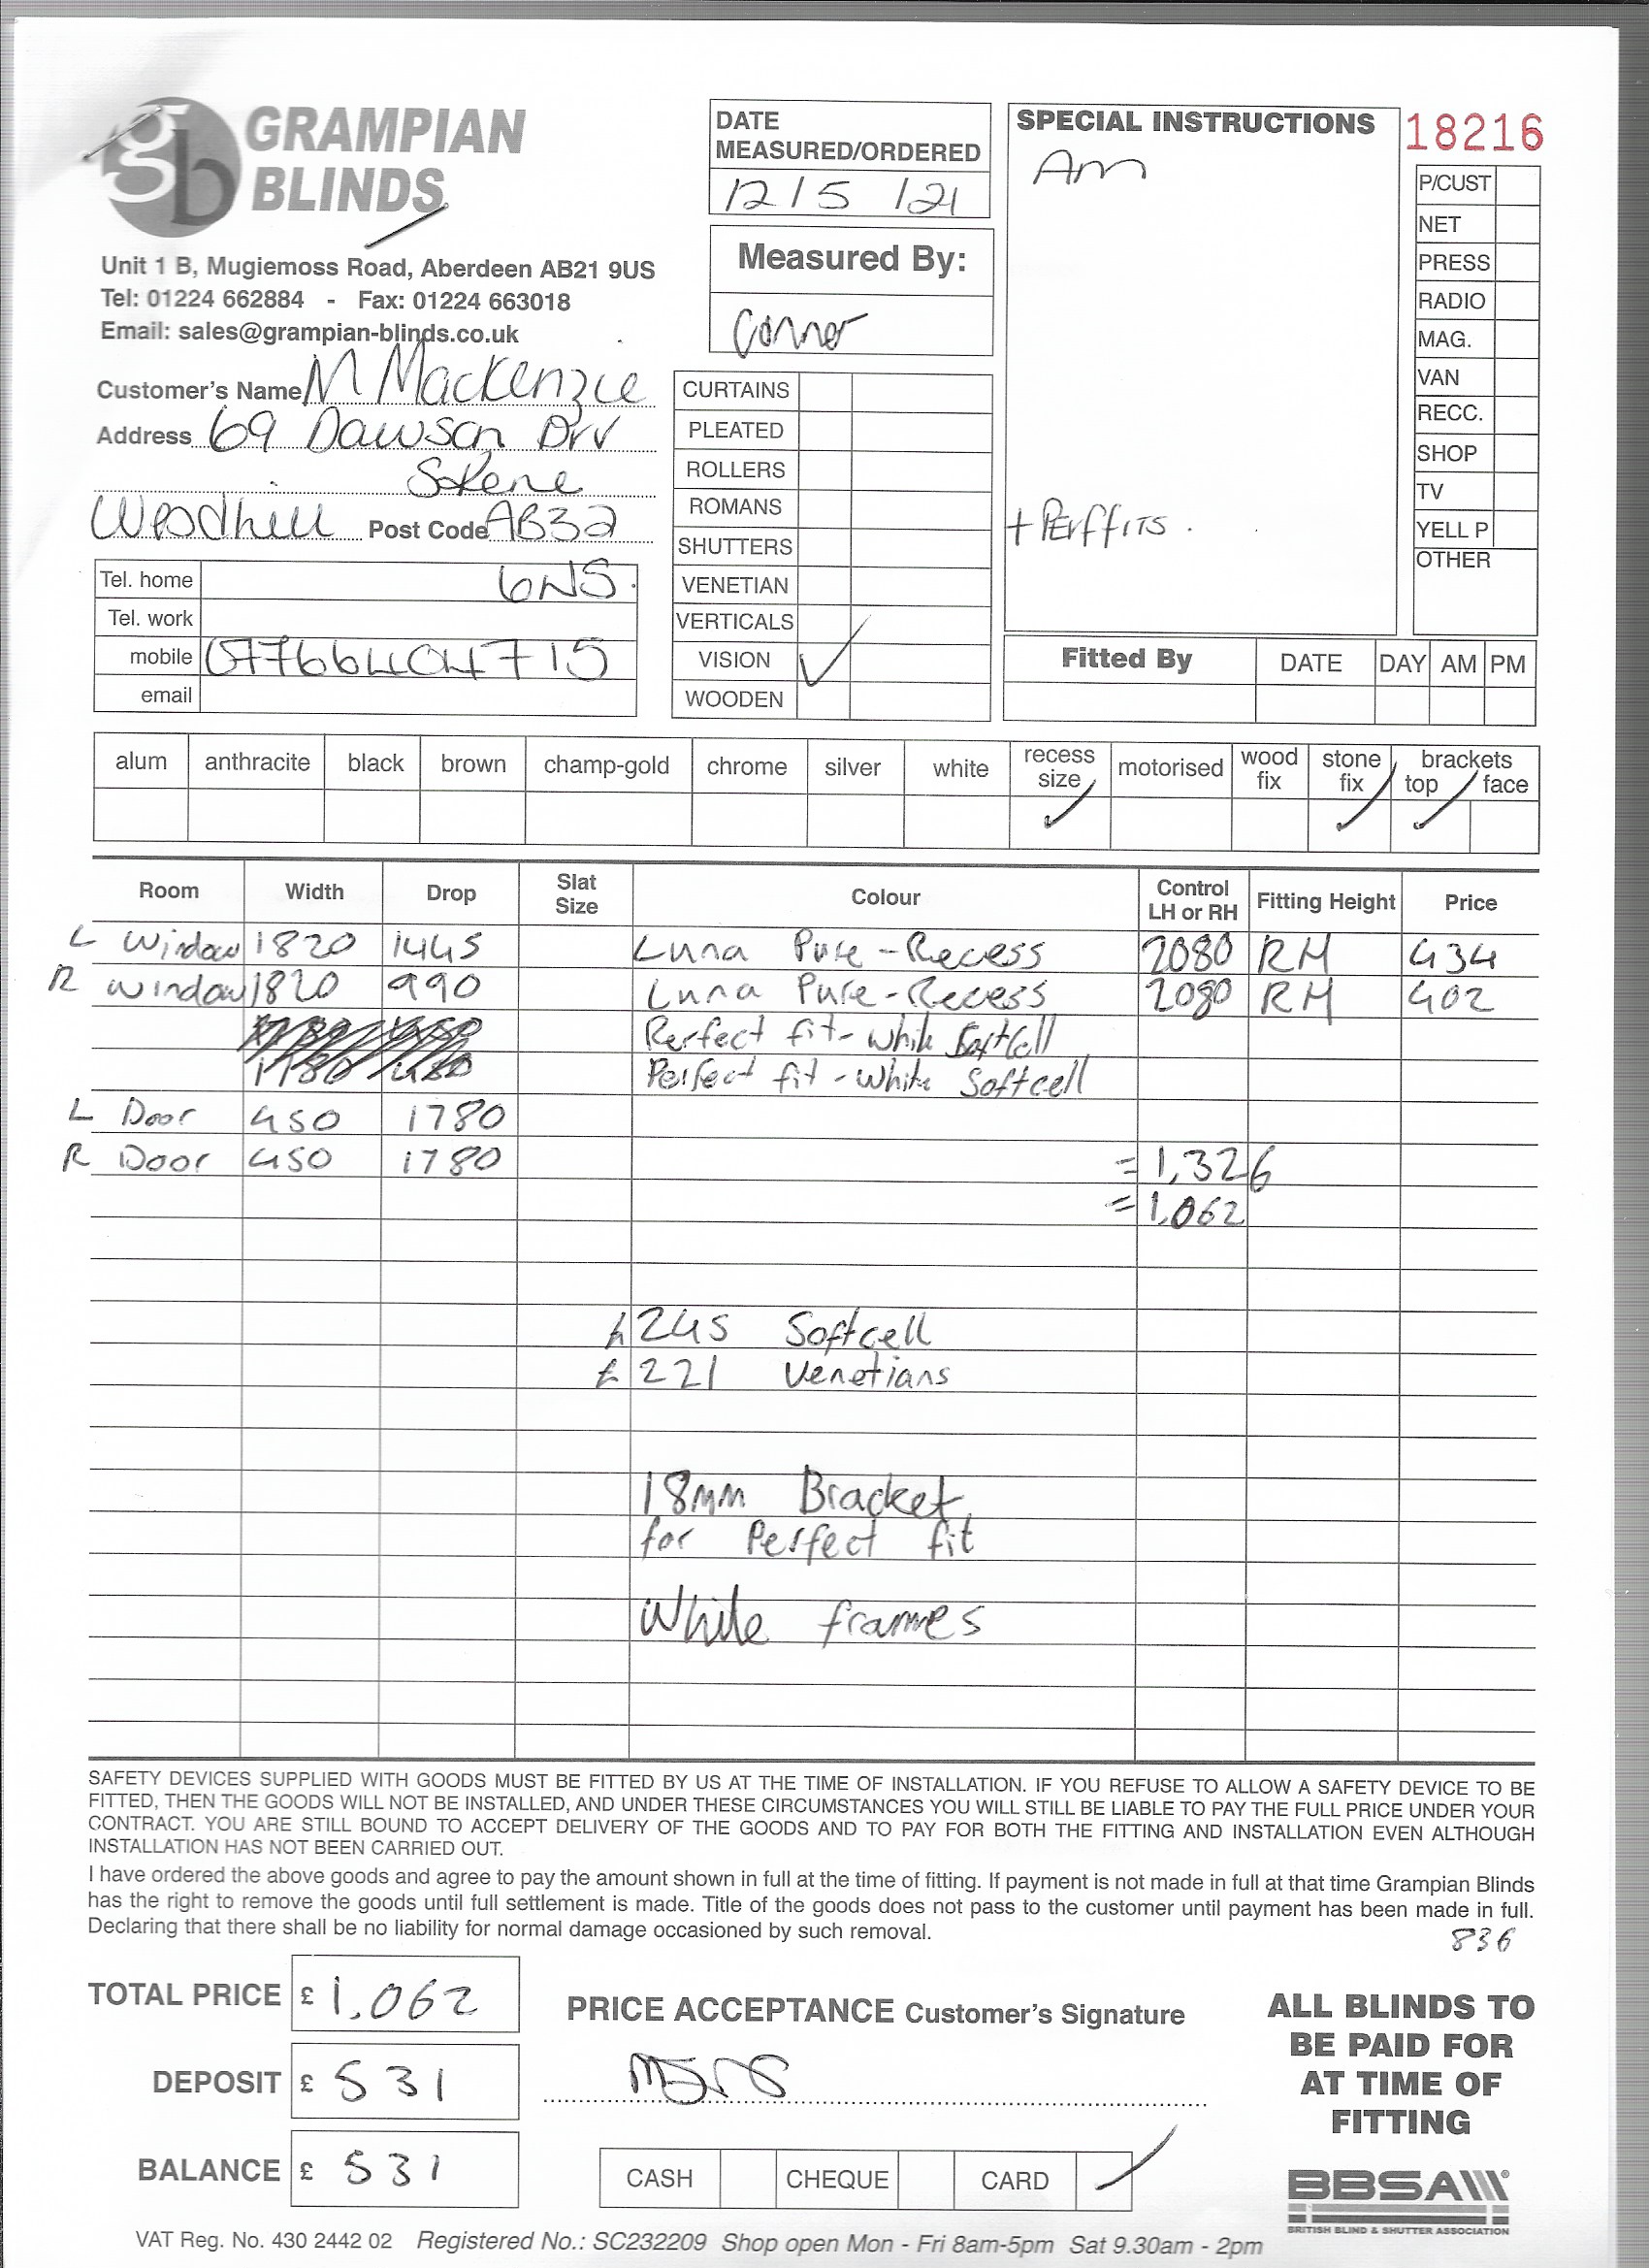 gb GRAMPIAN
BLINDS
Unit 1 B, Mugiemoss Road, Aberdeen AB21 9US
Tel: 01224 662884 - Fax: 01224 663018
Email: sales@grampian-blinds.co.uk
Customer's Name M Mackenzie
Address 69 Dawson Drv
Skene
Westhill Post Code AB32
Tel. home 6NS.
Tel. work
mobile 07766404715
email
DATE
MEASURED/ORDERED
12/5/21
Measured By:
Connor
CURTAINS
PLEATED
ROLLERS
ROMANS
SHUTTERS
VENETIAN
VERTICALS
VISION ✓
WOODEN
SPECIAL INSTRUCTIONS
Am
+ Perffits.
18216
P/CUST
NET
PRESS
RADIO
MAG.
VAN
RECC.
SHOP
TV
YELL P
OTHER
Fitted By DATE DAY AM PM
alum anthracite black brown champ-gold chrome silver white recess size motorised wood fix stone fix brackets top face
✓ ✓ ✓
Room Width Drop Slat Size Colour Control LH or RH Fitting Height Price
L Window 1820 1445 Luna Pure - Recess 2080 RH 434
R Window 1820 990 Luna Pure - Recess 2080 RH 402
Perfect fit - white Softcell
Perfect fit - white Softcell
L Door 450 1780
R Door 450 1780 = 1,326
= 1,062
£245 Softcell
£221 Venetians
18mm Bracket
for Perfect fit
White frames
SAFETY DEVICES SUPPLIED WITH GOODS MUST BE FITTED BY US AT THE TIME OF INSTALLATION. IF YOU REFUSE TO ALLOW A SAFETY DEVICE TO BE
FITTED, THEN THE GOODS WILL NOT BE INSTALLED, AND UNDER THESE CIRCUMSTANCES YOU WILL STILL BE LIABLE TO PAY THE FULL PRICE UNDER YOUR
CONTRACT. YOU ARE STILL BOUND TO ACCEPT DELIVERY OF THE GOODS AND TO PAY FOR BOTH THE FITTING AND INSTALLATION EVEN ALTHOUGH
INSTALLATION HAS NOT BEEN CARRIED OUT.
I have ordered the above goods and agree to pay the amount shown in full at the time of fitting. If payment is not made in full at that time Grampian Blinds
has the right to remove the goods until full settlement is made. Title of the goods does not pass to the customer until payment has been made in full.
Declaring that there shall be no liability for normal damage occasioned by such removal.
836
TOTAL PRICE £ 1,062
DEPOSIT £ 531
BALANCE £ 531
PRICE ACCEPTANCE Customer's Signature
CASH CHEQUE CARD ✓
ALL BLINDS TO
BE PAID FOR
AT TIME OF
FITTING
BBSA
BRITISH BLIND & SHUTTER ASSOCIATION
VAT Reg. No. 430 2442 02 Registered No.: SC232209 Shop open Mon - Fri 8am-5pm Sat 9.30am - 2pm